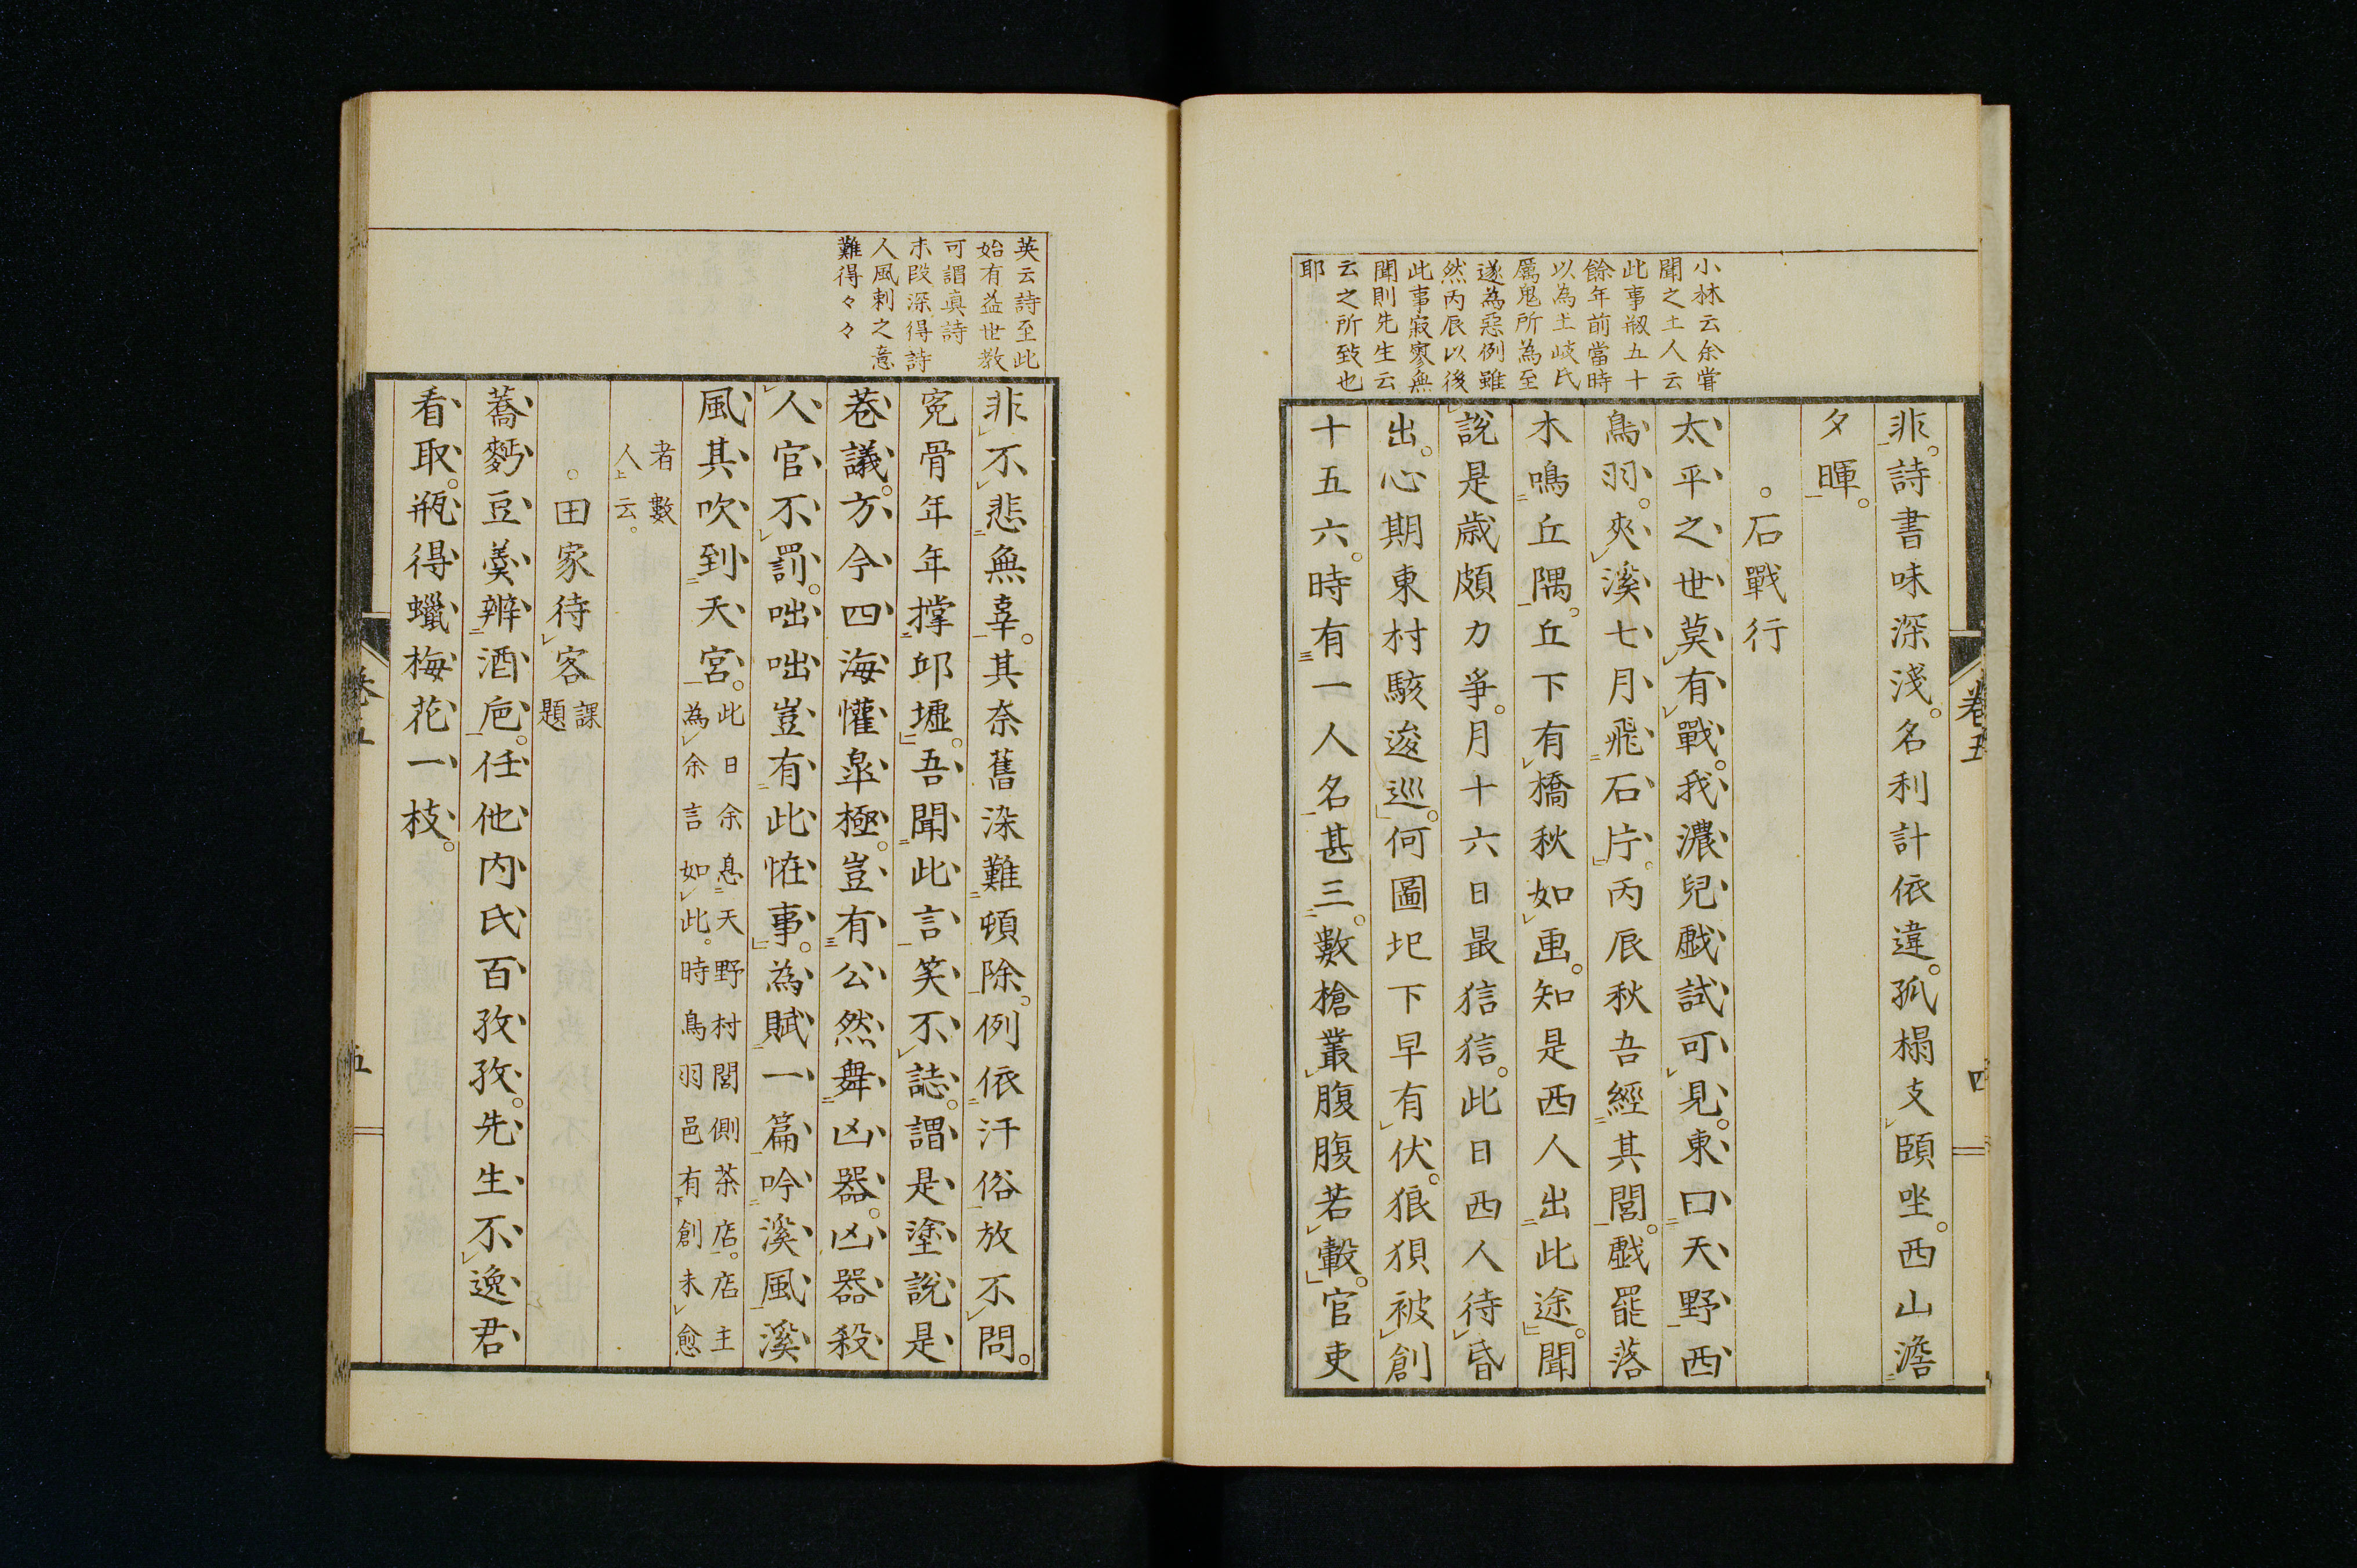 小林云余嘗
聞之土人云
此事剏五十
餘年前當時
以為土岐氏
厲鬼所為至
遂為惡例雖
然丙辰以後
此事寂寥無
聞則先生云
云之所致也
耶
非。詩書味深淺。名利計依違。孤榻支頤坐。西山澹
夕暉。
。石戰行
太平之世莫有戰。我濃兒戲試可見。東曰天野西
鳥羽。夾溪七月飛石片。丙辰秋吾經其閭。戲罷落
木鳴丘隅。丘下有橋秋如画。知是西人出此途。聞
說是歲頗力爭。月十六日最狺狺。此日西人待昏
出。心期東村駭逡巡。何圖圯下早有伏。狼狽被創
十五六。時有一人名甚三。數槍叢腹腹若轂。官吏
卷五
四
英云詩至此
始有益世教
可謂真詩
末段深得詩
人風刺之意
難得々々
非不悲無辜。其奈舊染難頓除。例依汗俗放不問。
冤骨年年撑邱墟。吾聞此言笑不誌。謂是塗說是
巷議。方今四海懽皐極。豈有公然舞凶器。凶器殺
人官不罰。咄咄豈有此恠事。為賦一篇吟溪風溪
風其吹到天宮。此日余息天野村閭側茶店。店主
為余言如此。時鳥羽邑有創未愈
者數
人云。
。田家待客課
題
蕎麪豆羹辨酒巵。任他内氏百孜孜。先生不逸君
看取。瓶得蠟梅花一枝。
卷五
五